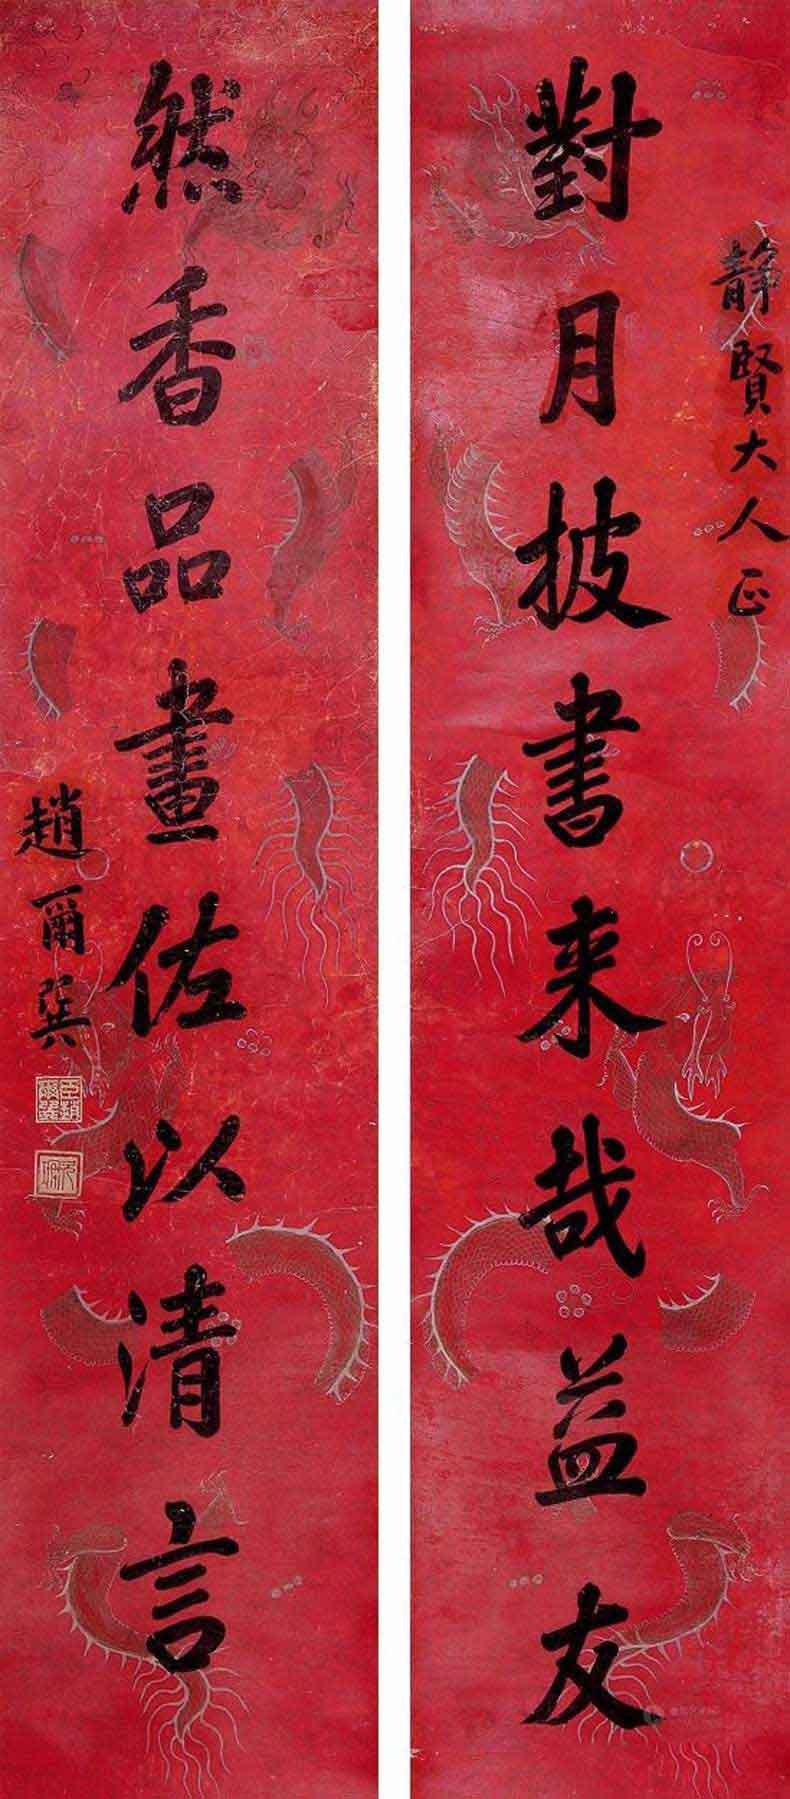 靜賢大人正
對月披書来哉益友
然香品畫佐以清言
趙爾巽